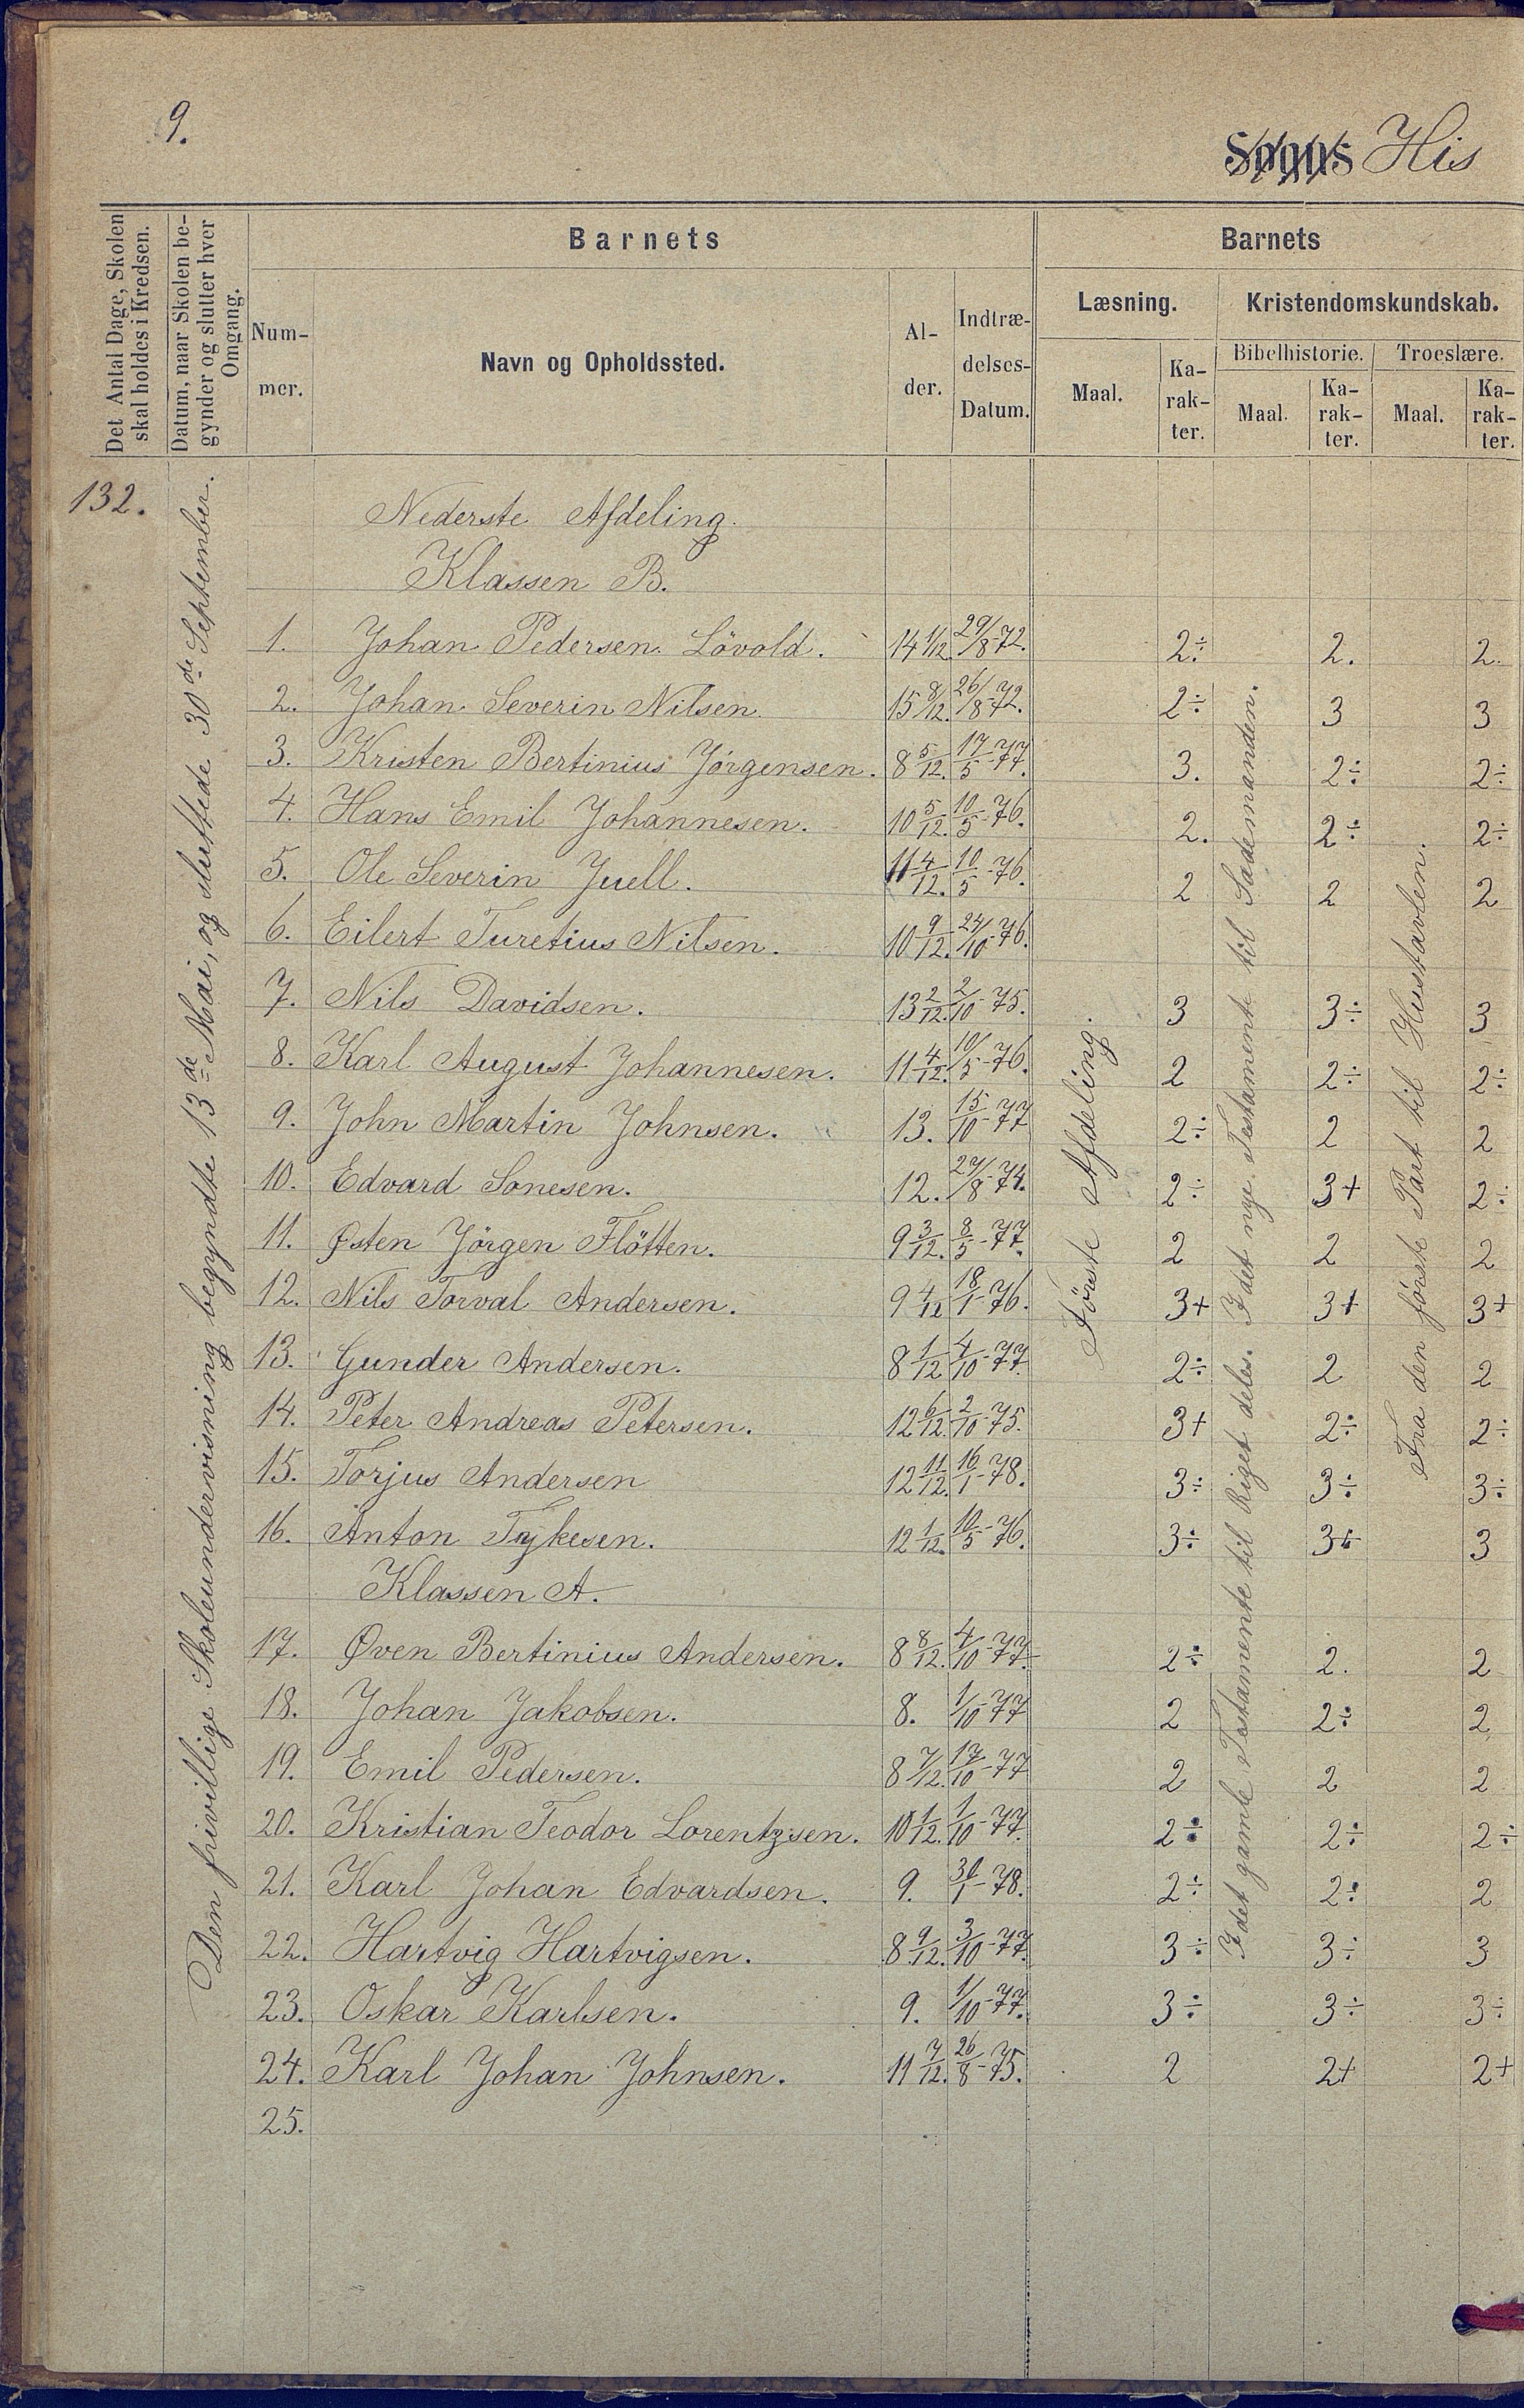 9.
Sogns His
Det Antal Dage, Skolen skal holdes i Kredsen.
Datum, naar Skolen begynder og slutter hver Omgang.
Barnets
Barnets
Num-mer.
Navn og Opholdssted.
Al-der.
Indtræ-delses-Datum.
Læsning.
Kristendomskundskab.
Bibelhistorie.
Troeslære.
Maal.
Ka-rak-ter.
Maal.
Ka-rak-ter.
Maal.
Ka-rak-ter.
132.
Den frivillige Skoleundervisning begyndte 13de Mai, og sluttede 30de September.
Nederste Afdeling.
Klassen B.
1. Johan Pedersen Lövold. 14 1/12. 29/8-72. 2÷ 2. 2.
2. Johan Severin Nilsen. 15 8/12. 26/8-72. 2÷ 3 3
3. Kristen Bertinius Jörgensen. 8 5/12. 17/5-77. 3. 2÷ 2÷
4. Hans Emil Johannesen. 10 5/12. 10/5-76. 2. 2÷ 2÷
5. Ole Severin Juell. 11 4/12. 10/5-76. 2 2 2
6. Eilert Turetius Nilsen. 10 9/12. 24/10-76.
7. Nils Davidsen. 13 2/12. 2/10-75. 3 3÷ 3
8. Karl August Johannesen. 11 4/12. 10/5-76. 2 2÷ 2÷
9. John Martin Johnsen. 13. 15/10-77 2÷ 2 2
10. Edvard Sonesen. 12. 27/8-74. 2÷ 3+ 2÷
11. Østen Jörgen Flötten. 9 3/12. 8/5-77. 2 2 2
12. Nils Torval Andersen. 9 4/12 18/1-76. 3+ 3+ 3+
13. Gunder Andersen. 8 1/12 4/10-77. 2÷ 2 2
14. Peter Andreas Petersen. 12 6/12. 2/10-75. 3+ 2÷ 2÷
15. Torjus Andersen 12 11/12. 16/1-78. 3÷ 3÷ 3÷
16. Anton Tykesen. 12 1/12. 10/5-76. 3÷ 3+ 3
Klassen A.
17. Øven Bertinius Andersen. 8 8/12. 4/10-77. 2÷ 2. 2
18. Johan Jakobsen. 8. 1/10-77 2 2÷ 2
19. Emil Pedersen. 8 7/12. 17/10-77 2 2 2
20. Kristian Teodor Lorentzsen. 10 1/12. 1/10-77. 2÷ 2÷ 2÷
21. Karl Johan Edvardsen. 9. 31/1-78. 2÷ 2÷ 2
22. Hartvig Hartvigsen. 8 9/12. 3/10-77. 3÷ 3÷ 3
23. Oskar Karlsen. 9. 1/10-77. 3÷ 3÷ 3÷
24. Karl Johan Johnsen. 11 7/12. 26/8-75. 2 2+ 2+
25.
Förste Afdeling.
I det gamle Testamente til Riget deles. I det nye Testament til Sædemanden.
Fra den förste Part til Hustavlen.